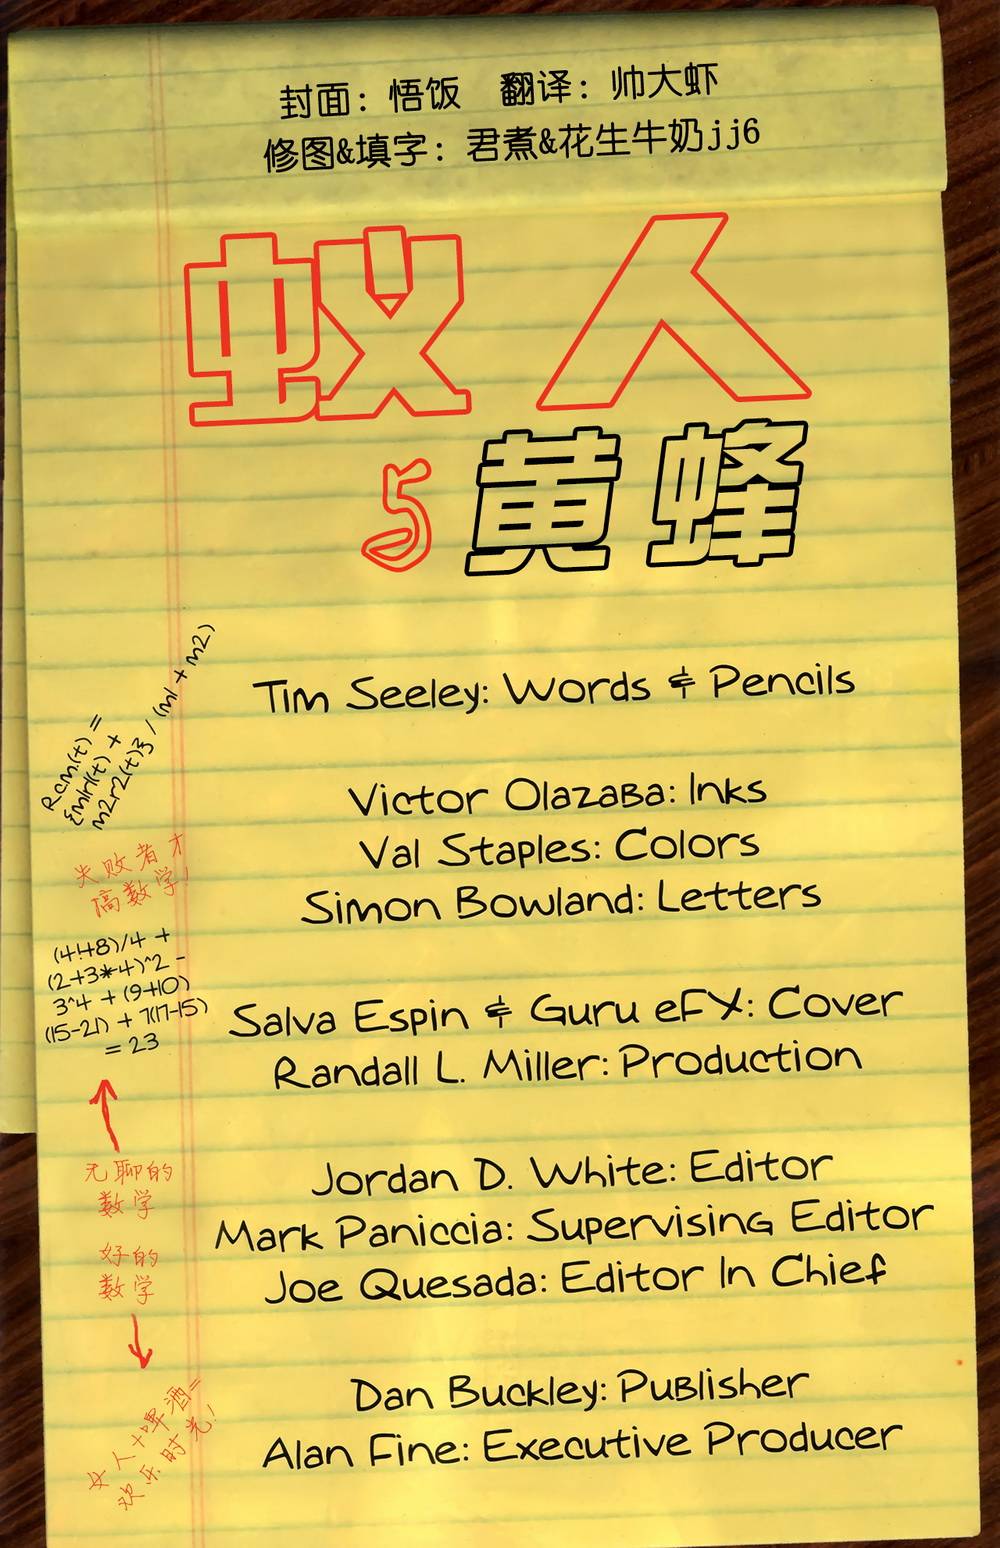 封面：悟饭　翻译：帅大虾
修图&填字：君煮&花生牛奶jj6
蚁人
与黄蜂
Tim Seeley: Words & Pencils
Victor Olazaba: Inks
Val Staples: Colors
Simon Bowland: Letters
Salva Espin & Guru eFX: Cover
Randall L. Miller: Production
Jordan D. White: Editor
Mark Paniccia: Supervising Editor
Joe Quesada: Editor In Chief
Dan Buckley: Publisher
Alan Fine: Executive Producer
Rcm(t) =
{m1r1(t) +
m2r2(t)} / (m1 + m2)
失败者才
搞数学!
(4!+8)/4 +
(2+3*4)^2 -
3^4 + (9+10)
(15-21) + 7(17-15)
= 23
无聊的
数学
好的
数学
女人+啤酒=
欢乐时光!